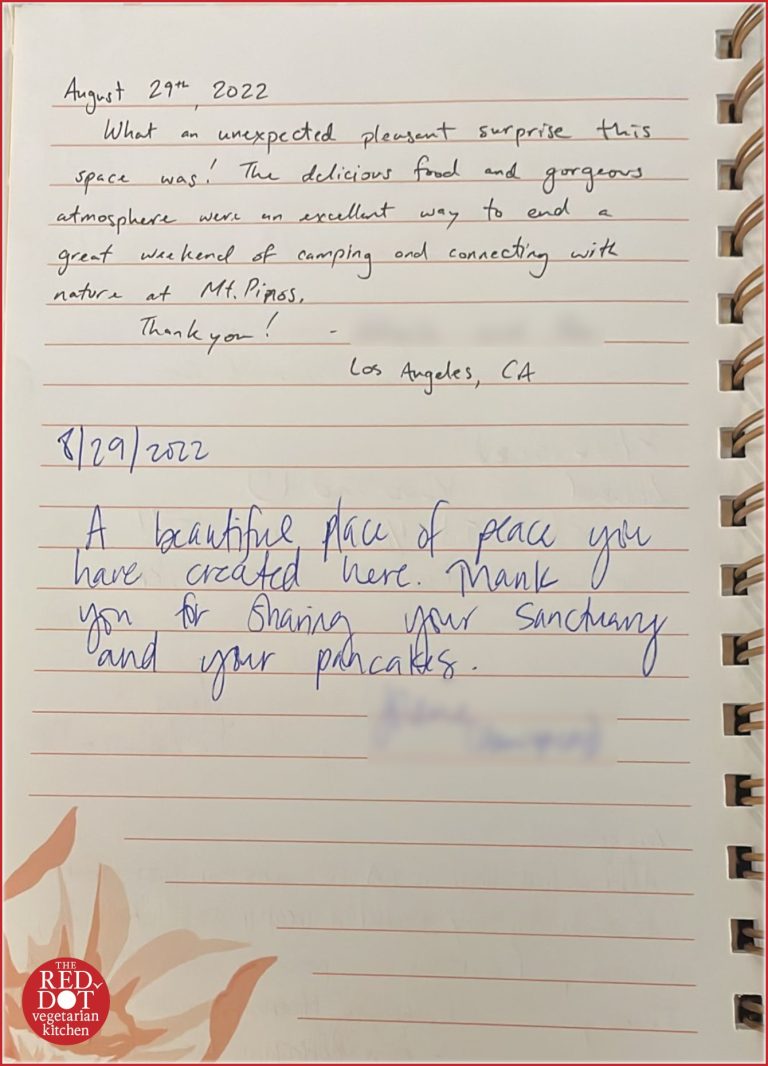 August 29th, 2022
What an unexpected pleasent surprise this
space was! The delicious food and gorgeous
atmosphere were an excellent way to end a
great weekend of camping and connecting with
nature at Mt. Pinos.
Thank you! -
Los Angeles, CA
8/29/2022
A beautiful place of peace you
have created here. Thank
you for sharing your sanctuary
and your pancakes.
THE
RED
DOT
vegetarian
kitchen